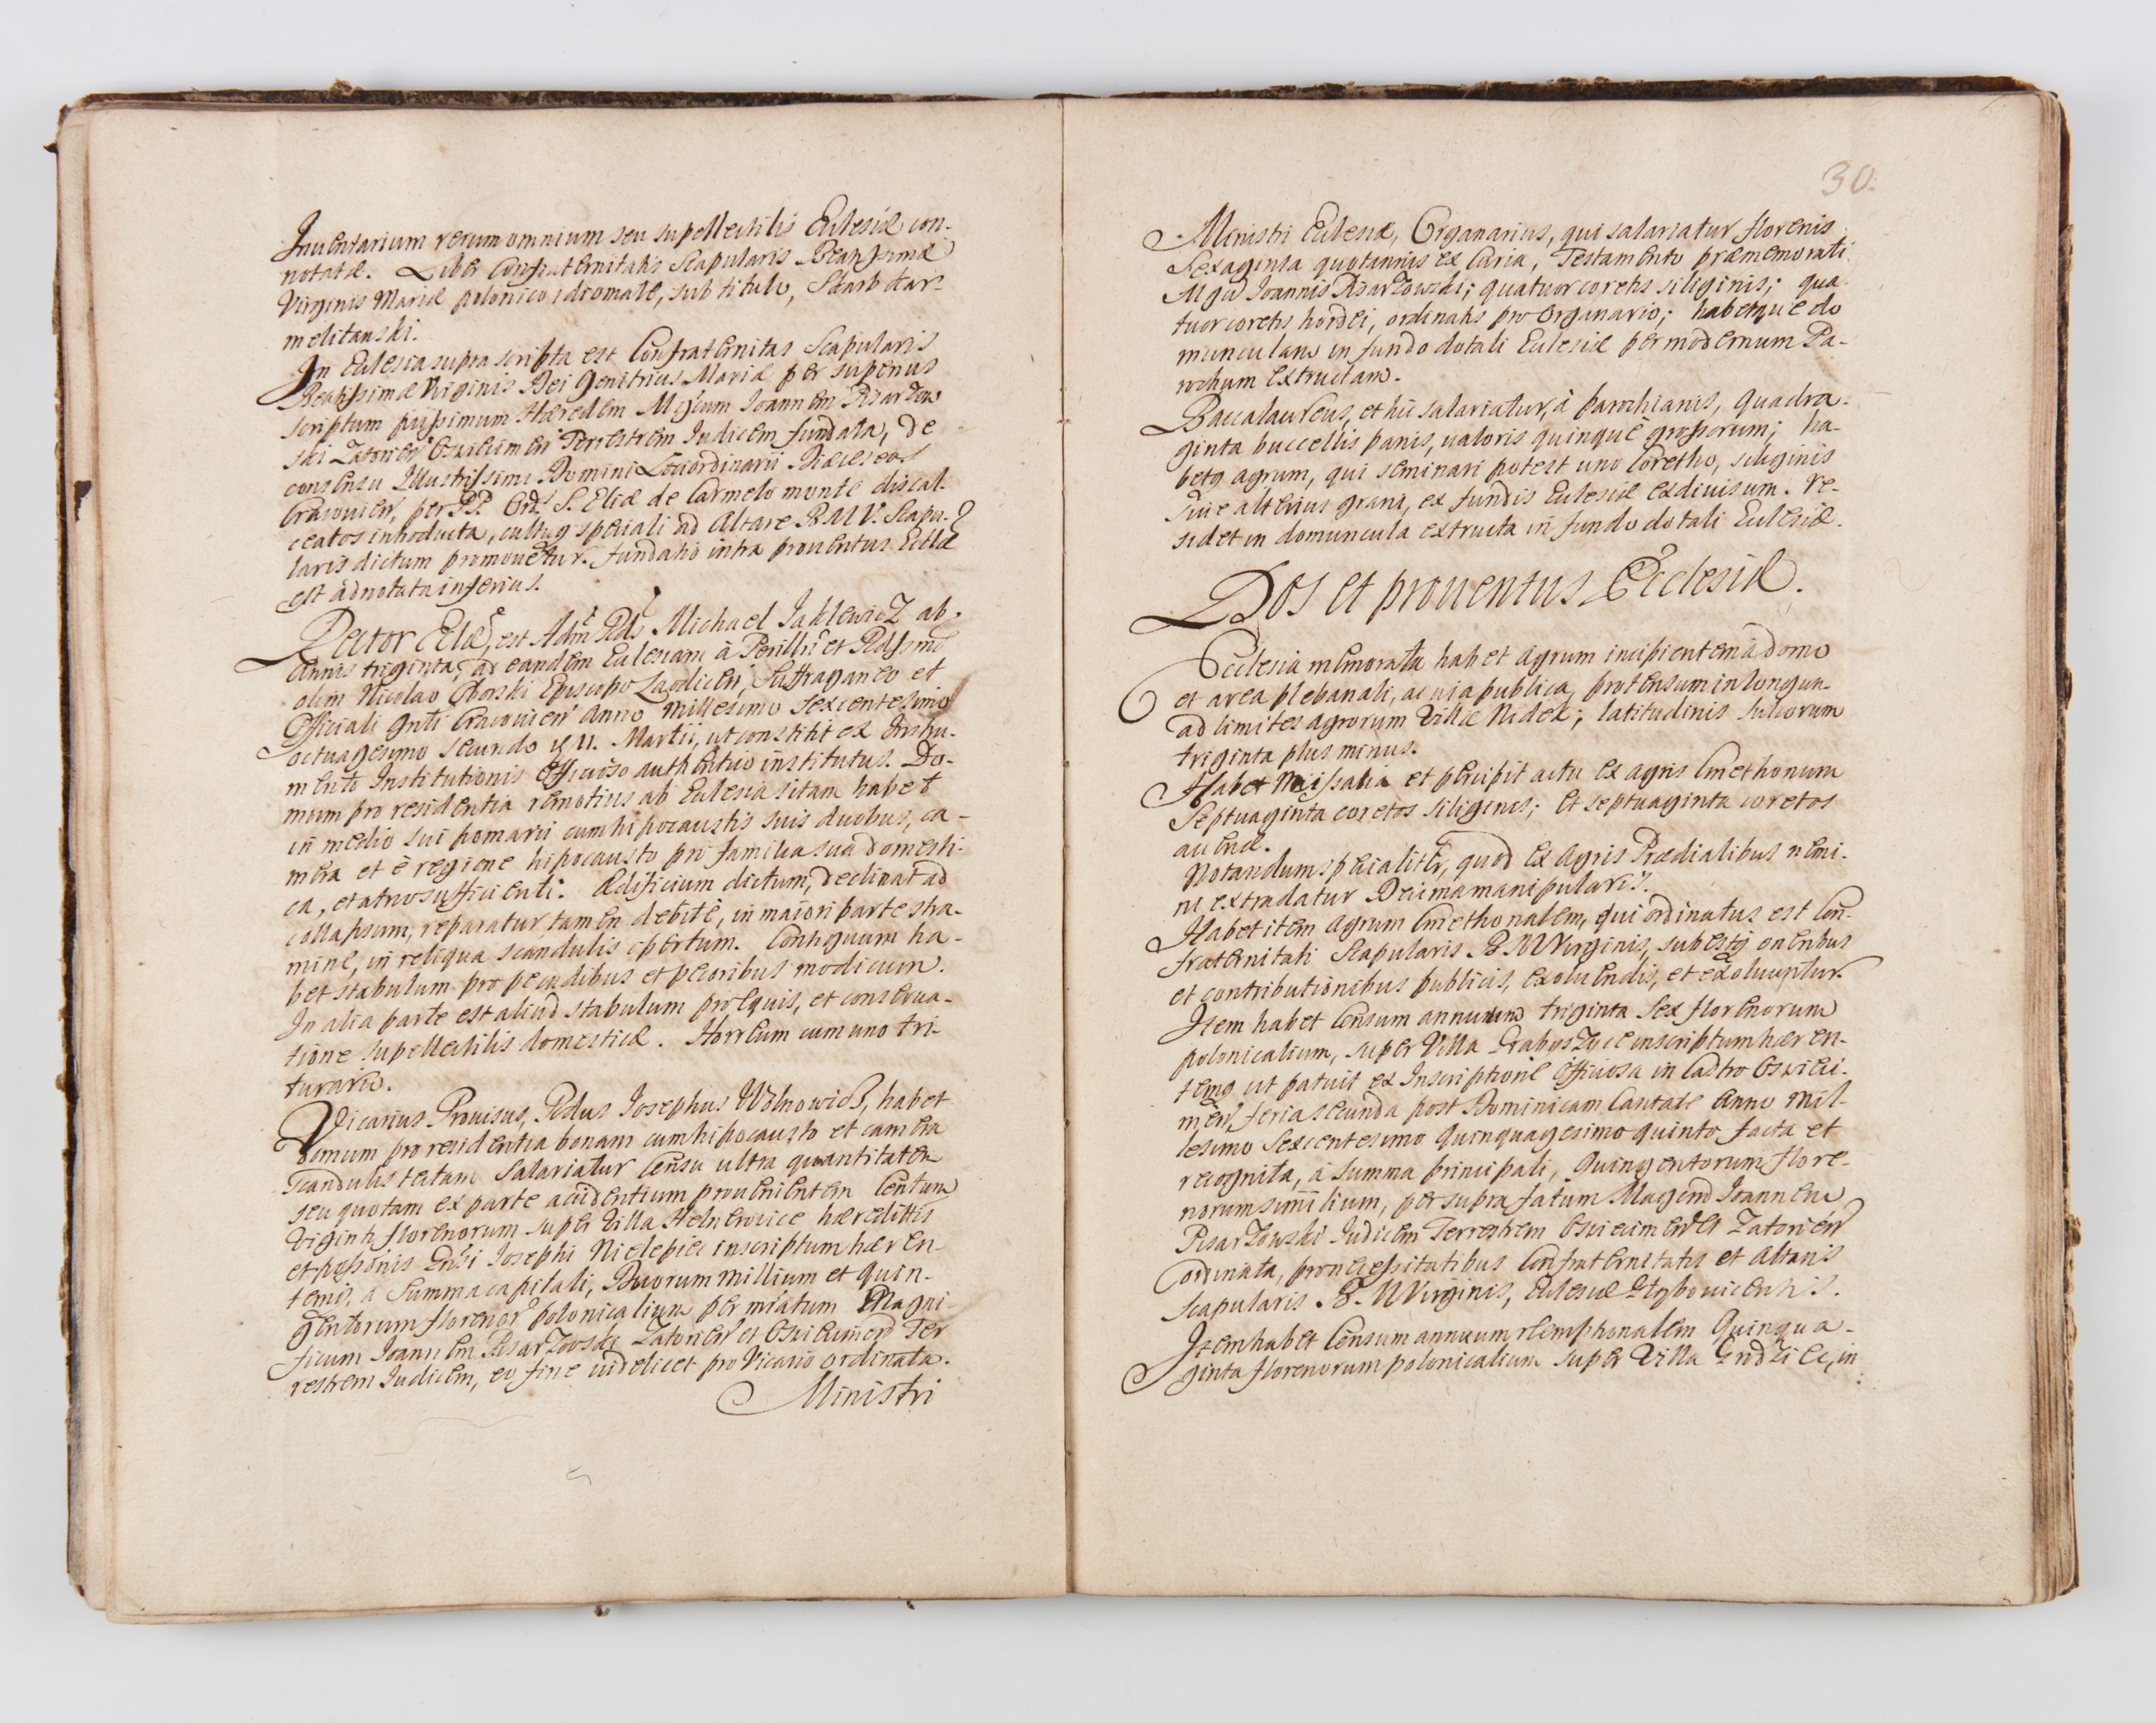 Inuentarium rerum omnium seu supellectilis Eclesiæ con-
notatæ. Liber Confraternitatis Scapularis Beatissimæ
Virginis Mariæ polonico idiomate, sub titulo, Skarb Kar-
melitanski.
In Eclesia supra scripta est Confraternitas Scapularis
Beatissimæ Virginis Dei Genitricis Mariæ per superius
scriptum piissimum Hæredem Mgcum Joannem Pisarzow
ski Zatorien Oswiecimen Terrestrem Judicem fundata, de
consensu Illustrissimi Domini Lociordinarii Diæceseos
Cracouien, per PP. Ord. S. Eliæ de Carmelo monte discal-
ceatos introducta, cultuq speciali ad Altare B.M.V. Scapu-
laris dictum promouetur. Fundatio intra prouentus Eccliæ
est adnotata inferius.
Rector Eclæ, est Adm Rds Michael Jaklewicz ab
Annis triginta, ad eandem Eclesiam à Perillri et Rdssmo
olim Nicolao Oborski Episcopo Laodicen, Suffraganeo et
Officiali Gnli Cracouien Anno Millesimo Sexcentesimo
octuagesimo secundo 11. Martii, ut constitit ex Instru-
mento Institutionis Officioso authentico institutus. Do-
mum pro residentia remotius ab Eclesia sitam habet
in medio sui pomarii cum hipocaustis suis duobus, ca-
mera et è regione hipocausto pro familia sua domesti-
ca, et atrio sufficienti. Ædificium dictum, declinat ad
collapsum, reparatur tamen debitè, in maiori parte stra-
mine, in reliqua scandulis opertum. Contiguum ha-
bet stabulum pro pecudibus et pecoribus modicum.
In alia parte est aliud stabulum pro equis, et conserua-
tione supellectilis domesticæ. Horreum cum uno tri-
turario.
Vicarius Prouisus, Rdus Josephus Wolnowicz, habet
domum pro residentia bonam cum hipocausto et camera
scandulis tectam Salariatur Censu ultra quantitatem
seu quotam ex parte accidentium prouenientem Centum
viginti florenorum super Villa Helnerwice hæreditatis
et possionis Gnsi Josephi Nielepiec inscriptum hæren-
temq, a Summa capitali, Duorum millium et quin-
gentorum florenor polonicalium per mratum Magni-
ficum Joannem Pisarzowski Zatorien et Oswiecimen Ter
restrem Judicem, eo fine videlicet pro Vicario ordinata.
Ministri
30.
Ministri Eclesiæ, Organarius, qui salariatur florenis
sexaginta quotannis ex Caria, Testamento præmemorati
Mgci Joannis Pisarzowski; quatuor coretis siliginis; qua
tuor coretis hordei, ordinatis pro Organario; habetque do
munculam in fundo dotali Eclesiæ per modernum Pa-
rochum extructam.
Baccalaureus, et hic salariatur, à parochianis, quadra-
ginta buccellis panis, ualoris quinque grossorum; ha-
betq agrum, qui seminari potest uno Coretho, siliginis
siue alterius grani, ex fundis Eclesiæ exdiuisum. re-
sidet in domuncula extructa in fundo dotali Eclesiæ.
Dos et prouentus Ecclesiæ.
Ecclesia memorata habet agrum incipientem à domo
et area plebanali, ac uia publica, protensum in longum
ad limites agrorum Villæ Nidek; latitudinis sulcorum
triginta plus minus.
Habet Missalia et percipit actu ex agris Cmethonum
Septuaginta coretos siliginis; et septuaginta coretos
auenæ.
Notandum specialiter, quod ex Agris Prædialibus nemi-
ni extradatur Decima manipularis.
Habet item agrum Cmethonalem, qui ordinatus est Con-
fraternitati Scapularis B. M Virginis, subestq oneribus
et contributionibus publicis, exoluendis, et exoluuntur.
Item habet Censum annuum triginta Sex florenorum
polonicalium, super Villa Grabyszyce inscriptum hæren-
temq ut patuit ex Inscriptione Officiosa in Castro Oswieci-
men, feria secunda post Dominicam Cantate Anno mil-
lesimo Sexcentesimo Quinquagesimo quinto facta et
recognita, à Summa principali, Quingentorum flore-
norum similium, per supra fatum Magcnd Joannem
Pisarzowski Judicem Terrestrem Oswiecimen et Zatorien
ordinata, pro necessitatibus Confraternitatis et Altaris
Scapularis B. M Virginis, Eclesiæ Grybouicensis.
Item habet Censum annuum reemptionalem Quinqua-
ginta florenorum polonicalium super Villa Grodziec, in